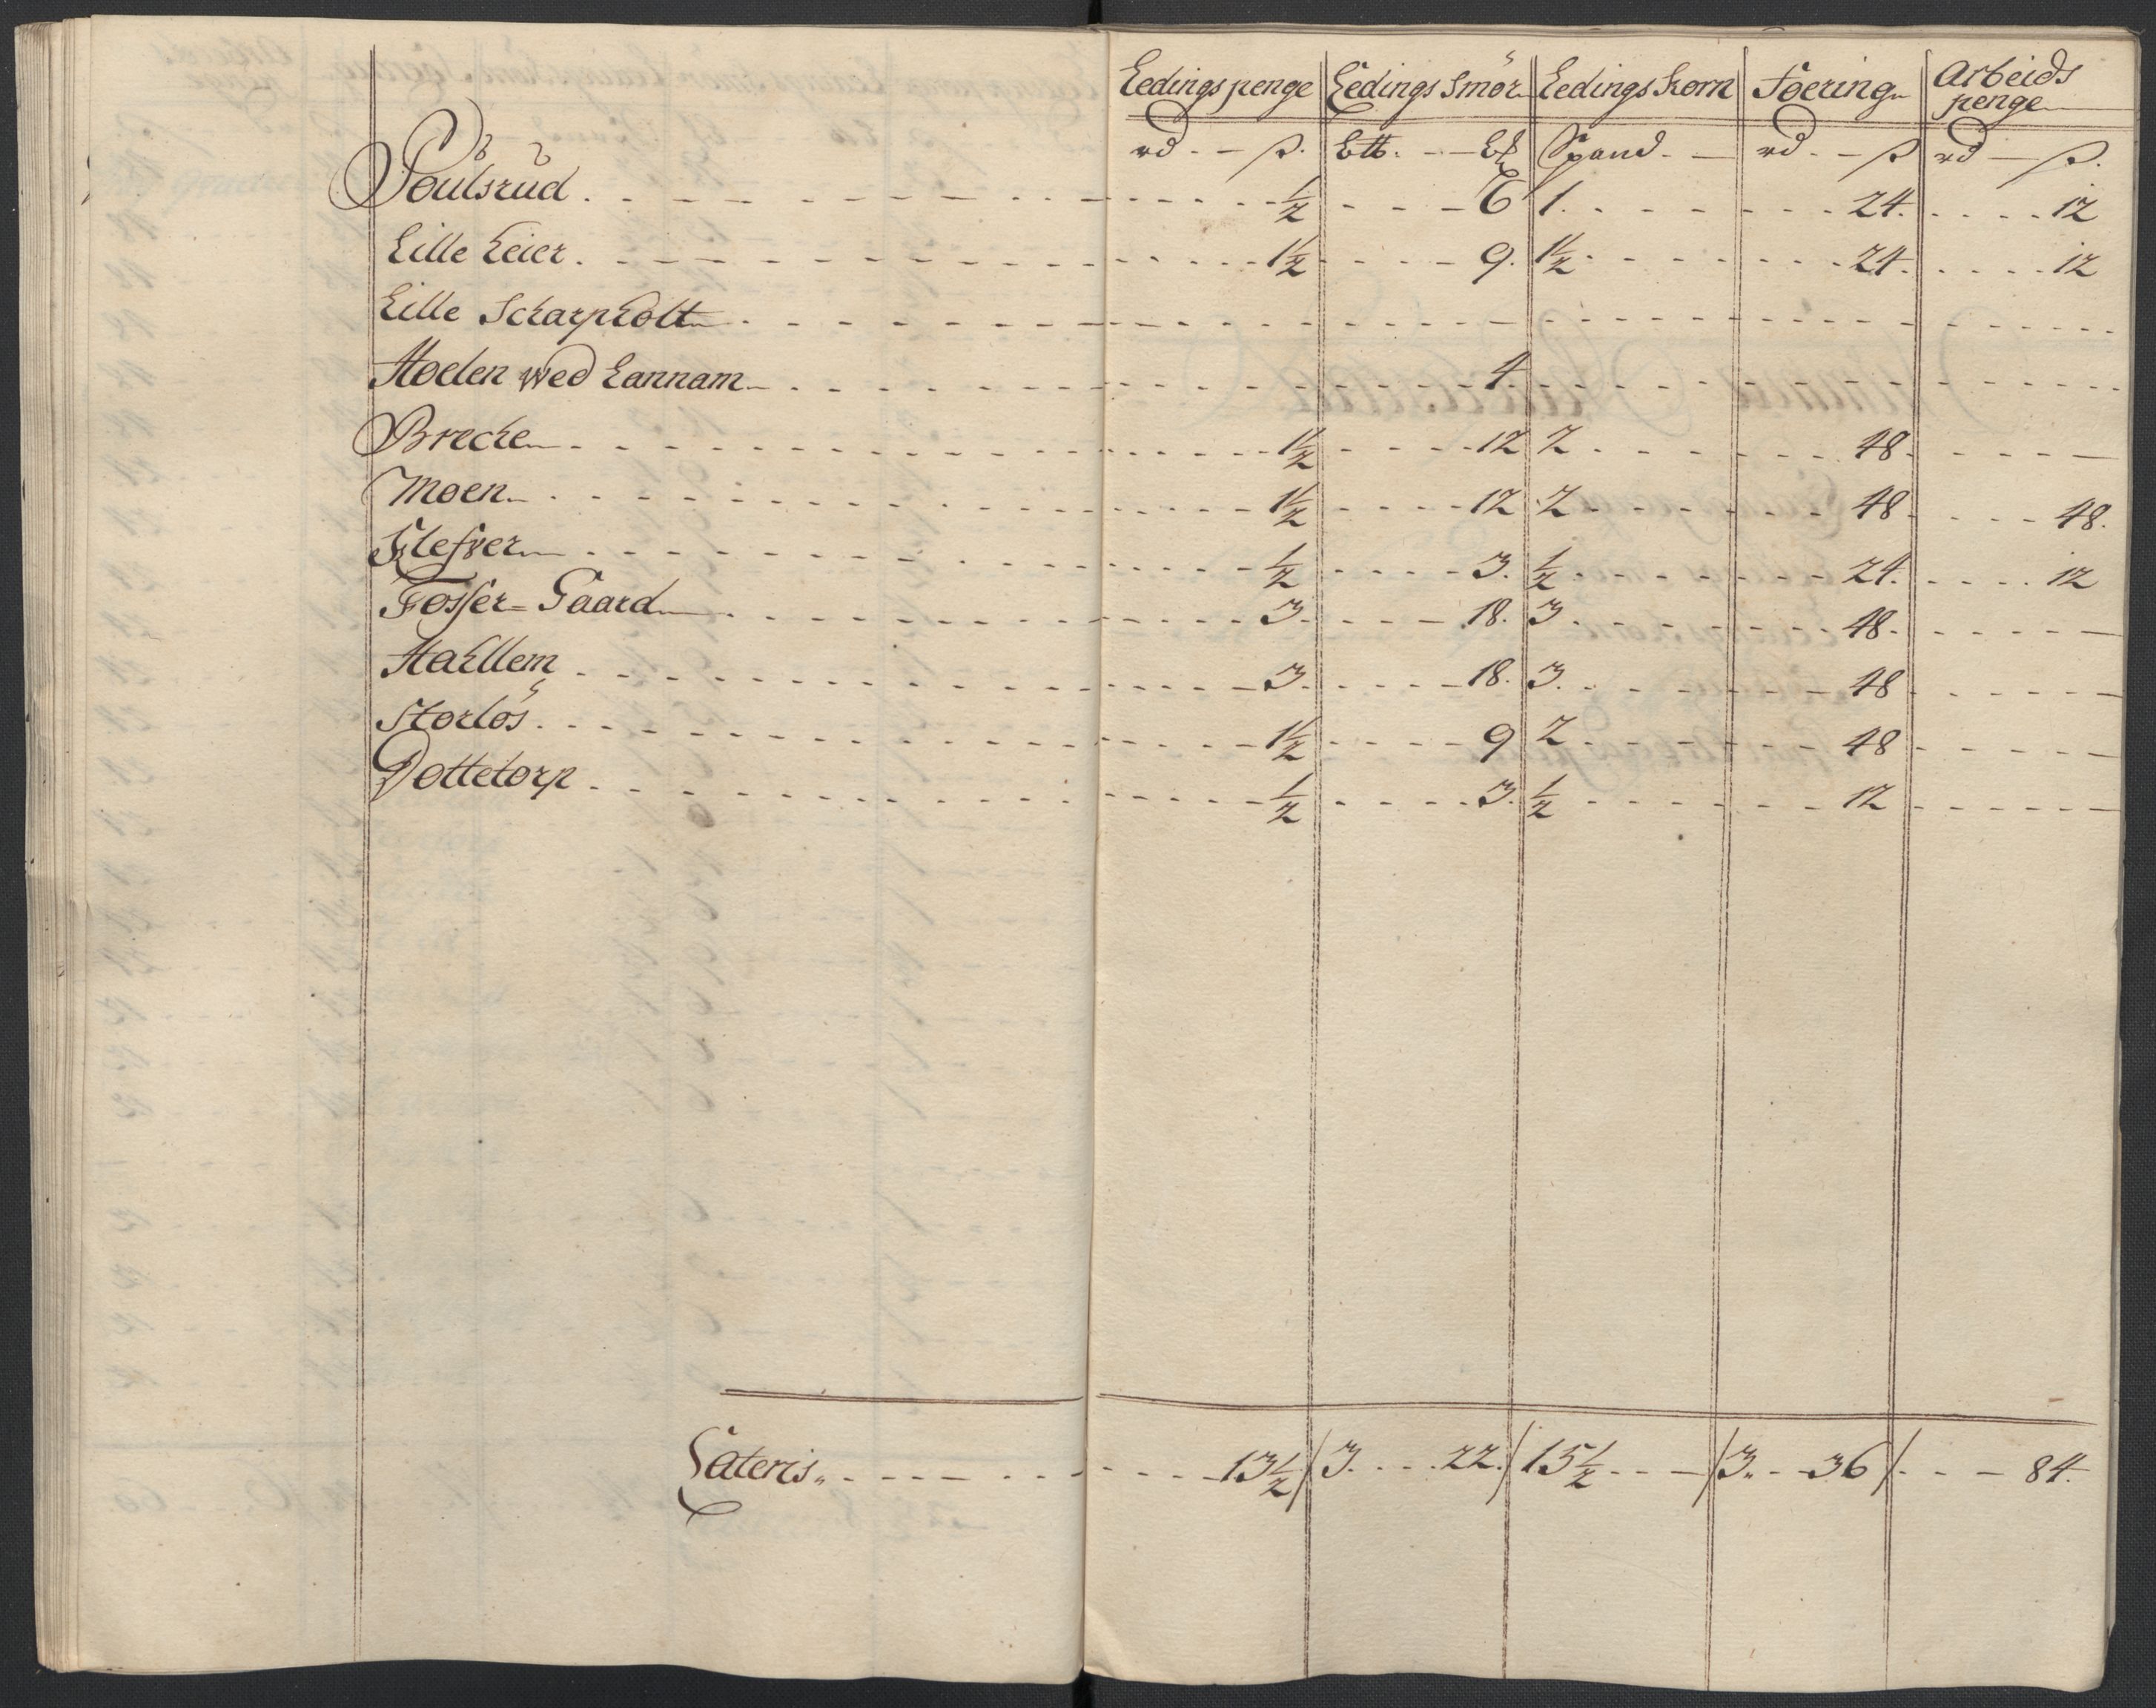 Ledings penge Ledings Smör Ledings Korn Foering Arbeids penge
rd ß. Lb. Spand rd ß rd ß.
Poulsrud ½ 6 1. 24. 12
Lille Leier 1½ 9. 1½ 24. 12
Lille Scharpholt
Hoelen wed Lannam 4
Brecke 1½ 12 2 48
Moen 1½ 12 2 48 48.
Klefver ½ 3. ½ 24. 12
Fosser=Gaard 3 18. 3 48
Hakllem 3 18. 3. 48
Storlös 1½ 9 2 48
Dottetorp ½ 3. ½ 12
Lateris 13½ / 3. 22. / 15½ / 3. 36 / 84.